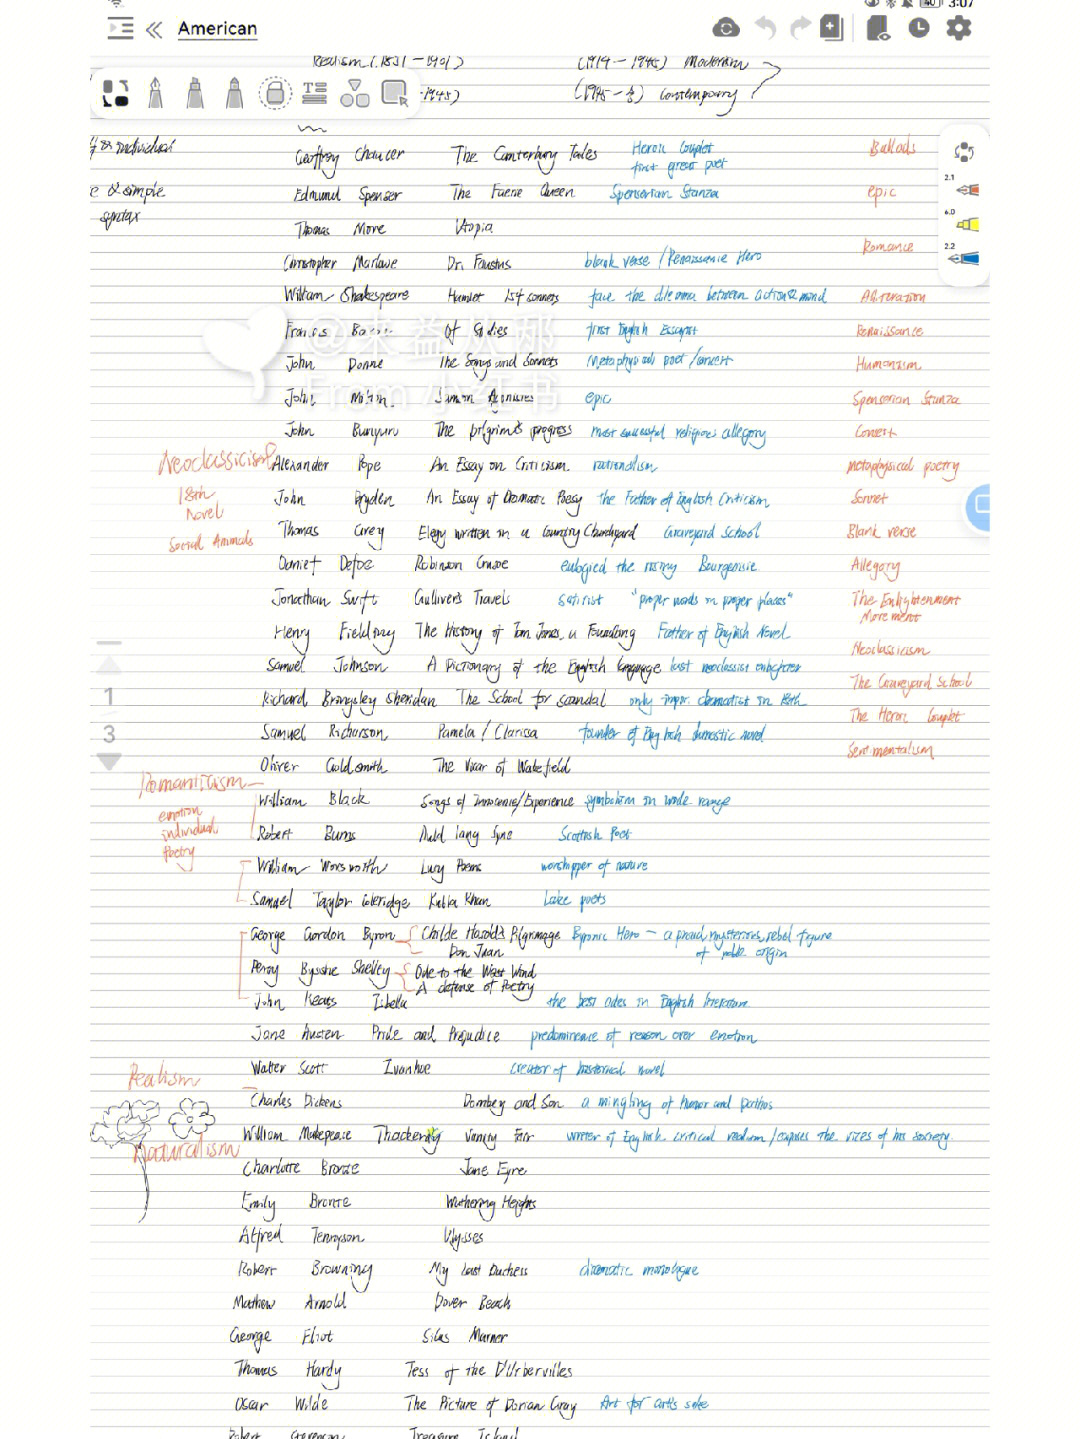 3:07
American
Realism (1831-1901)
(1914-1945) Modernism
-1945)
(1945-今) Contemporary
individual
Geoffrey Chaucer The Canterbury Tales Heroic Couplet
first great poet
Ballads
e & simple
syntax
Edmund Spenser The Faerie Queen Spenserian Stanza
epic
Thomas More Utopia
Romance
Christopher Marlowe Dr. Faustus blank verse / Renaissance Hero
William Shakespeare Hamlet 154 sonnets face the dilemma between action & mind
Alliteration
Francis Bacon Of Studies first English Essayist
Renaissance
@未益从邪
From 小红书
John Donne The Songs and Sonnets Metaphysical poet / conceit
Humanism
John Milton Samson Agonistes epic
Spenserian Stanza
John Bunyan The pilgrim's progress most successful religious allegory
Conceit
Neoclassicism
Alexander Pope An Essay on Criticism rationalism
Metaphysical poetry
18th
Novel
John Dryden An Essay of Dramatic Poesy the Father of English Criticism
Sonnet
Social Animals
Thomas Grey Elegy written in a Country Churchyard Graveyard School
Blank verse
Daniel Defoe Robinson Crusoe eulogied the rising Bourgeoisie
Allegory
Jonathan Swift Gulliver's Travels Satirist "proper words in proper places"
The Enlightenment
Movement
Henry Fielding The History of Tom Jones, a Foundling Father of English Novel
Neoclassicism
Samuel Johnson A Dictionary of the English language last neoclassist enlightener
The Graveyard School
Richard Bringsley Sheridan The School for scandal only impor. dramatist in 18th
The Heroic Couplet
Samuel Richarson Pamela / Clarissa founder of English domestic novel
Sentimentalism
1
3
Oliver Goldsmith The Vicar of Wakefield
Romanticism
William Black Songs of Innocence/Experience symbolism in wide range
emotion
individual
Poetry
Robert Burns Auld lang Syne Scottish Poet
William Worsworth Lucy Poems worshipper of nature
Samuel Taylor Coleridge Kubla Khan Lake poets
George Gordon Byron Childe Harold's Pilgrimage Byronic Hero - a proud, mysterious, rebel figure
Don Juan of noble origin
Percy Bysshe Shelley Ode to the West Wind
A defense of Poetry
John Keats Isbella the best odes in English literature
Jane Austen Pride and Prejudice predominence of reason over emotion
Walter Scott Ivanhoe creator of historical novel
Realism
Charles Dickens Dombey and Son a mingling of humor and pathos
Naturalism
William Makepeace Thackeray Vanity Fair writer of English critical realism / exposes the vices of his society
Charlotte Bronte Jane Eyre
Emily Bronte Wuthering Heights
Alfred Tennyson Ulysses
Robert Browning My Last Duchess dramatic monologue
Mathew Arnold Dover Beach
George Eliot Silas Marner
Thomas Hardy Tess of the D'Urbervilles
Oscar Wilde The Picture of Dorian Gray Art for art's sake
Robert Stevenson Treasure Island